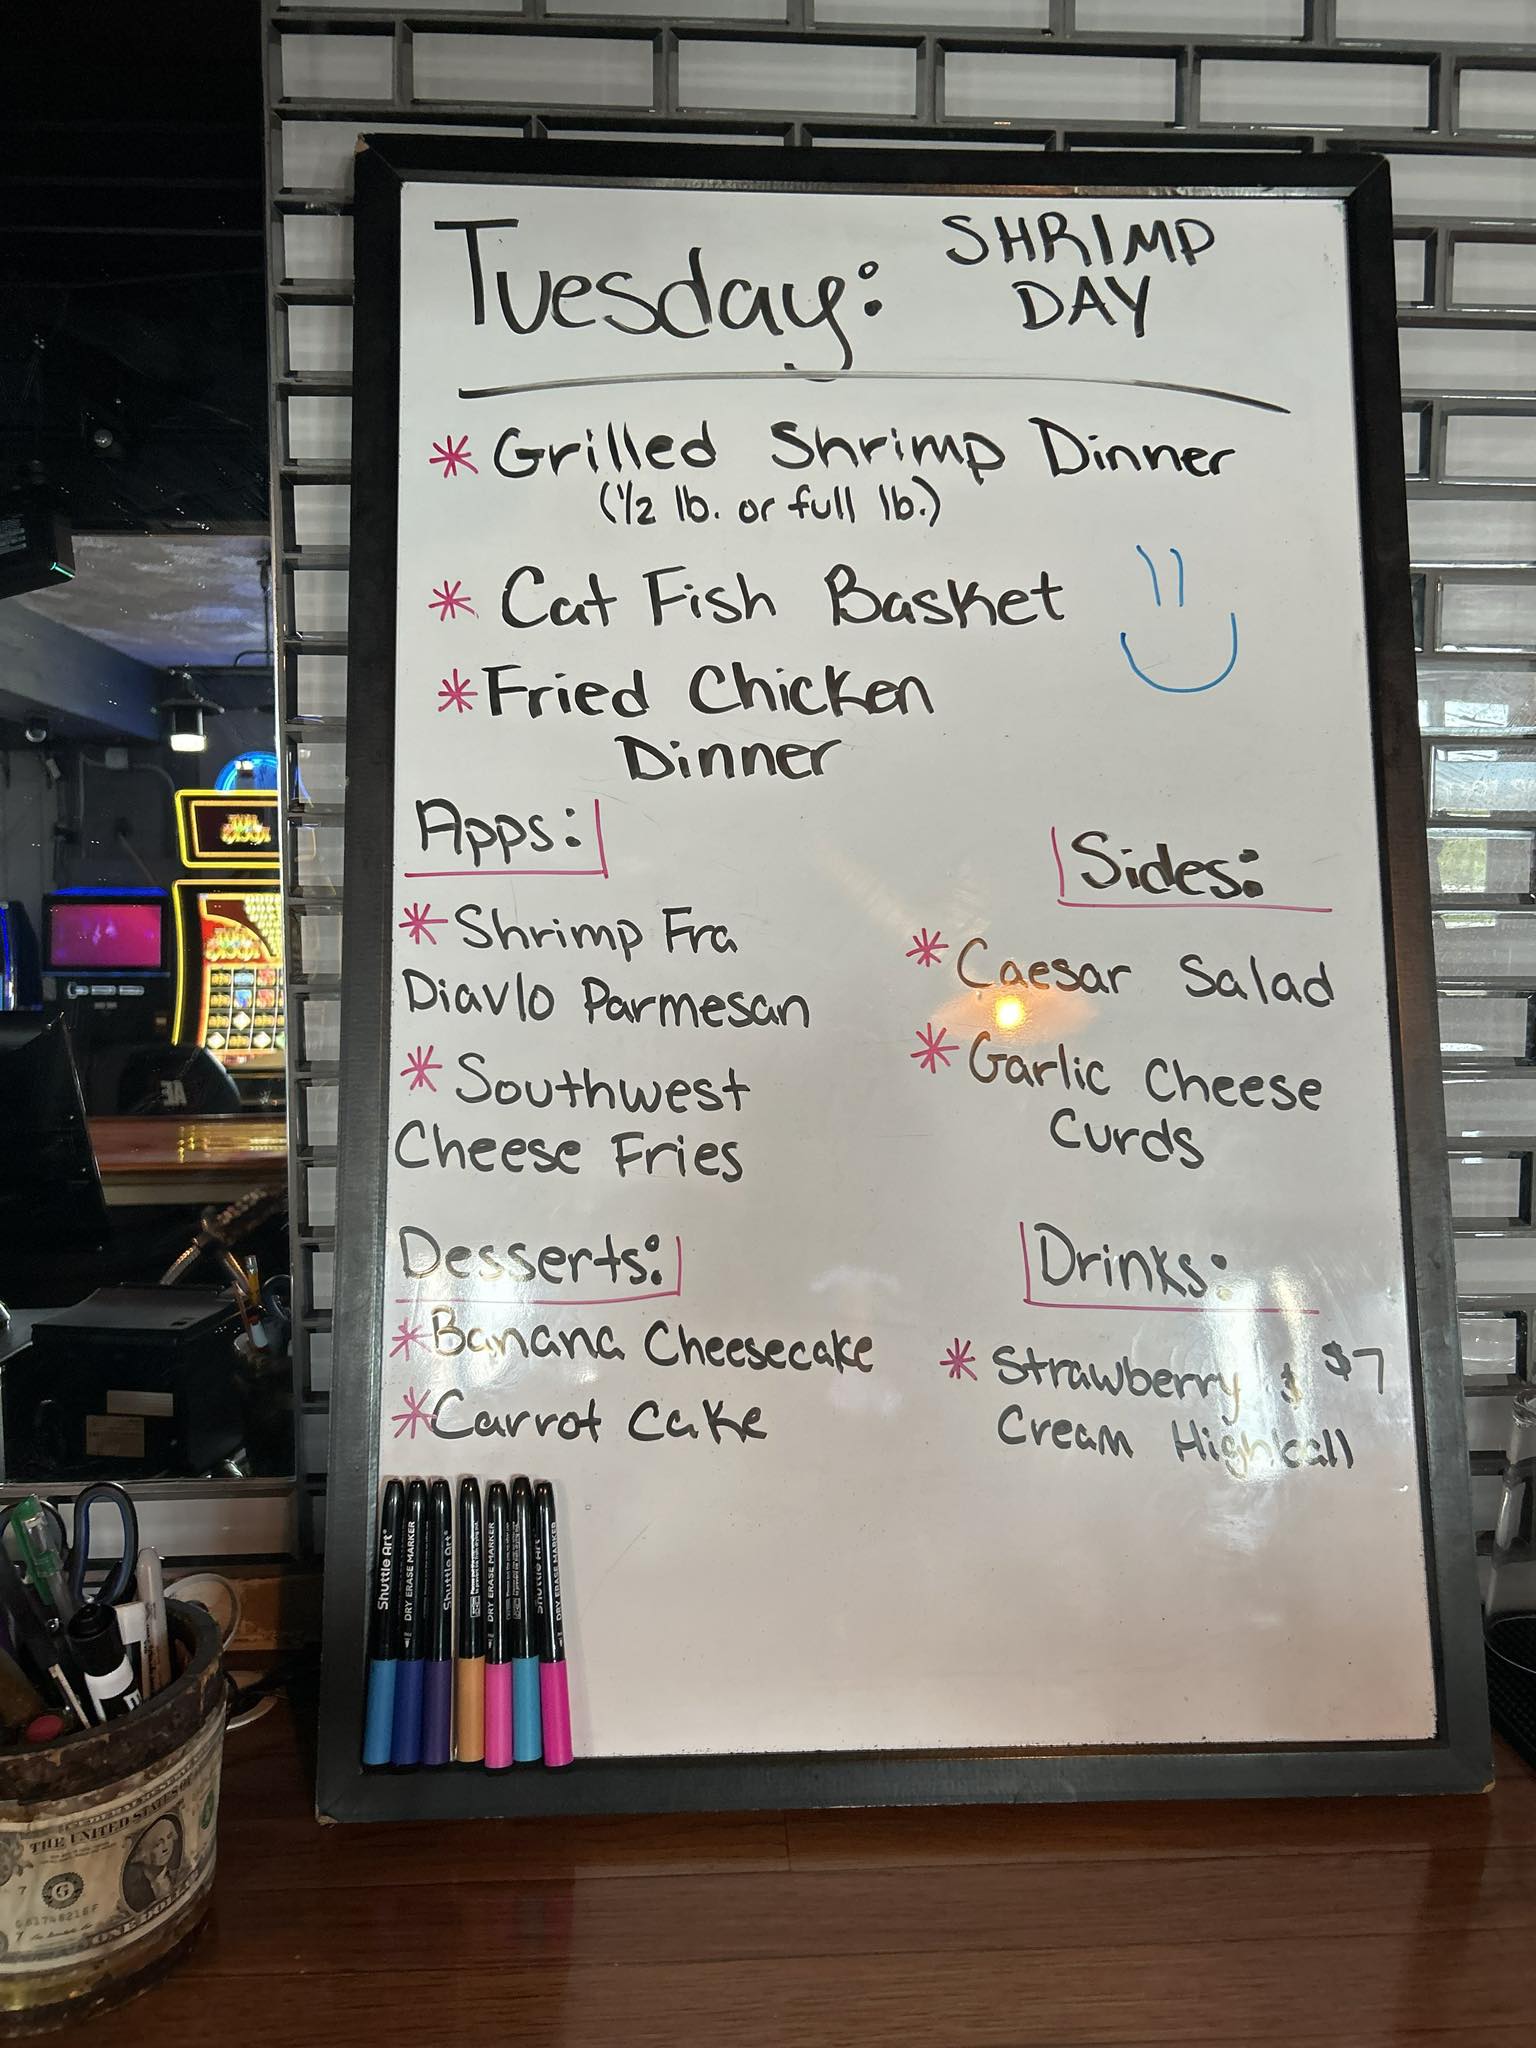 Tuesday: SHRIMP
DAY
* Grilled Shrimp Dinner
(1/2 lb. or full lb.)
* Cat Fish Basket
* Fried Chicken
Dinner
Apps:
* Shrimp Fra
Diavlo Parmesan
* Southwest
Cheese Fries
Sides:
* Caesar Salad
* Garlic Cheese
Curds
Desserts:
* Banana Cheesecake
* Carrot Cake
Drinks:
* Strawberry $ $7
Cream Highball
Shuttle Art®
DRY ERASE MARKER
Shuttle Art®
DRY ERASE MARKER
Shuttle Art
DRY ERASE MARKER
THE UNITED STATES OF
ONE DOLLAR